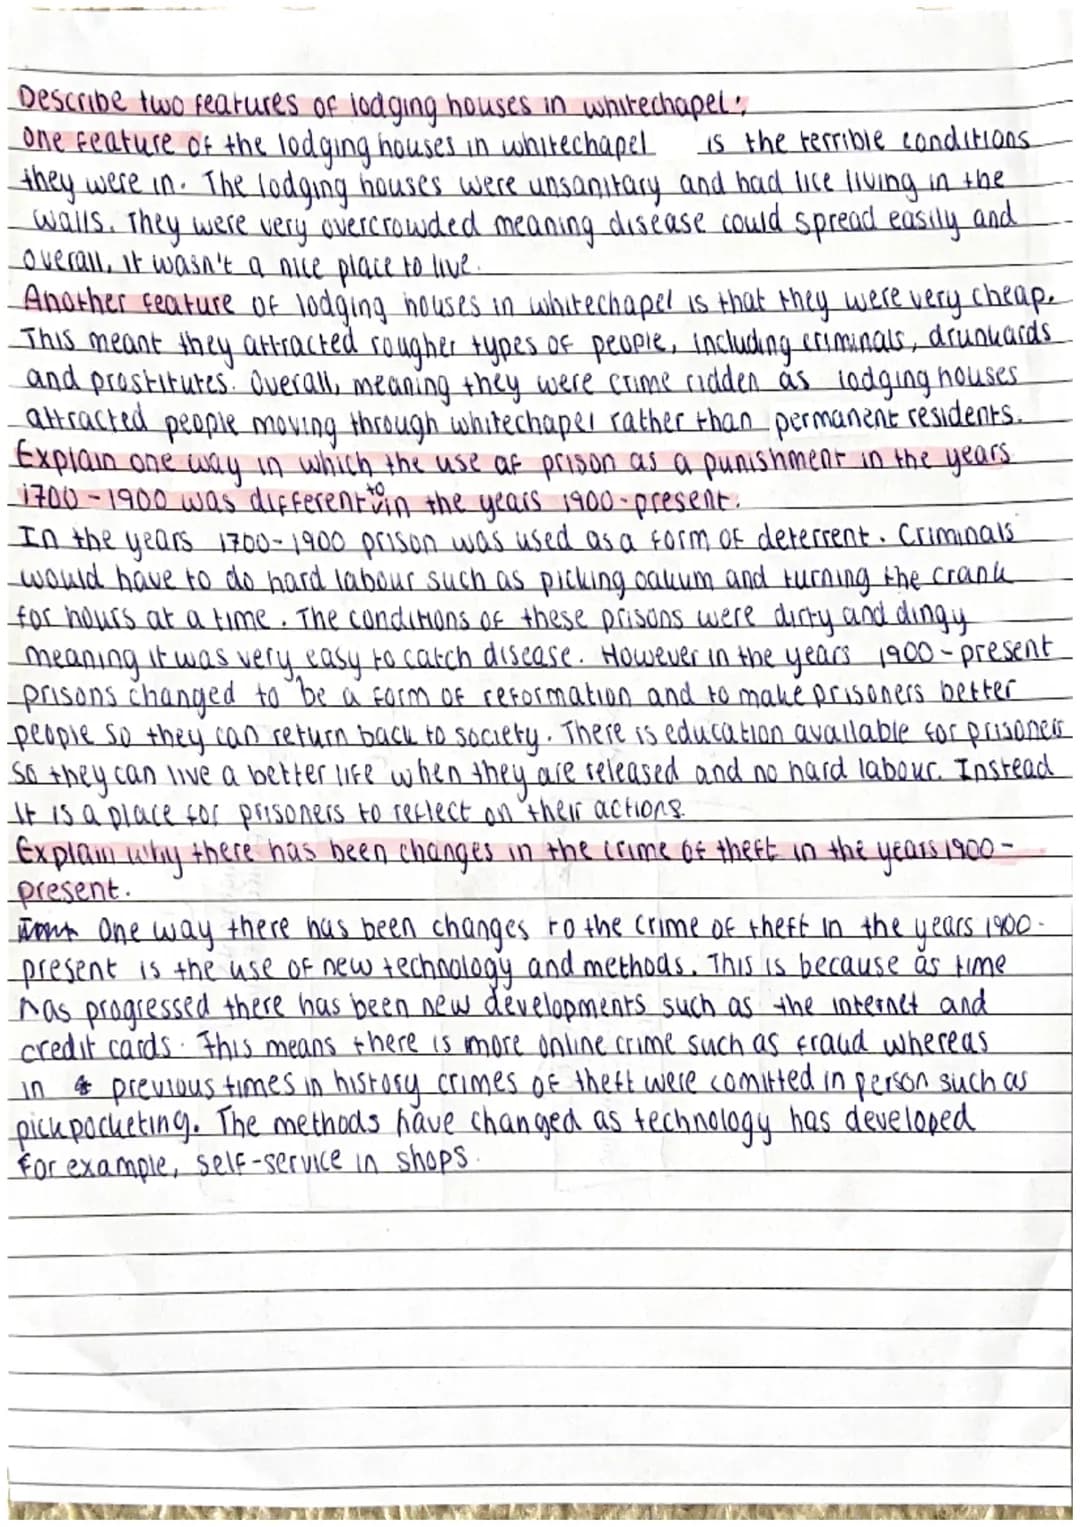 Describe two features of lodging houses in whitechapel:
One feature of the lodging houses in whitechapel is the terrible conditions
they were in. The lodging houses were unsanitary and had lice living in the
walls. They were very overcrowded meaning disease could spread easily and
overall, it wasn't a nice place to live.
Another feature of lodging houses in whitechapel is that they were very cheap.
This meant they attracted rougher types of people, including criminals, drunkards
and prostitutes. Overall, meaning they were crime ridden as lodging houses
attracted people moving through whitechapel rather than permanent residents.
Explain one way in which the use of prison as a punishment in the years
1700-1900 was different to in the years 1900-present.
In the years 1700-1900 prison was used as a form of deterrent. Criminals
would have to do hard labour such as picking oakum and turning the crank
for hours at a time. The conditions of these prisons were dirty and dingy
meaning it was very easy to catch disease. However in the years 1900-present
prisons changed to be a form of reformation and to make prisoners better
people so they can return back to society. There is education available for prisoners
so they can live a better life when they are released and no hard labour. Instead
it is a place for prisoners to reflect on their actions.
Explain why there has been changes in the crime of theft in the years 1900-
present.
One way there has been changes to the crime of theft in the years 1900-
present is the use of new technology and methods. This is because as time
has progressed there has been new developments such as the internet and
credit cards. This means there is more online crime such as fraud whereas
in previous times in history crimes of theft were comitted in person such as
pickpocketing. The methods have changed as technology has developed
for example, self-service in shops.